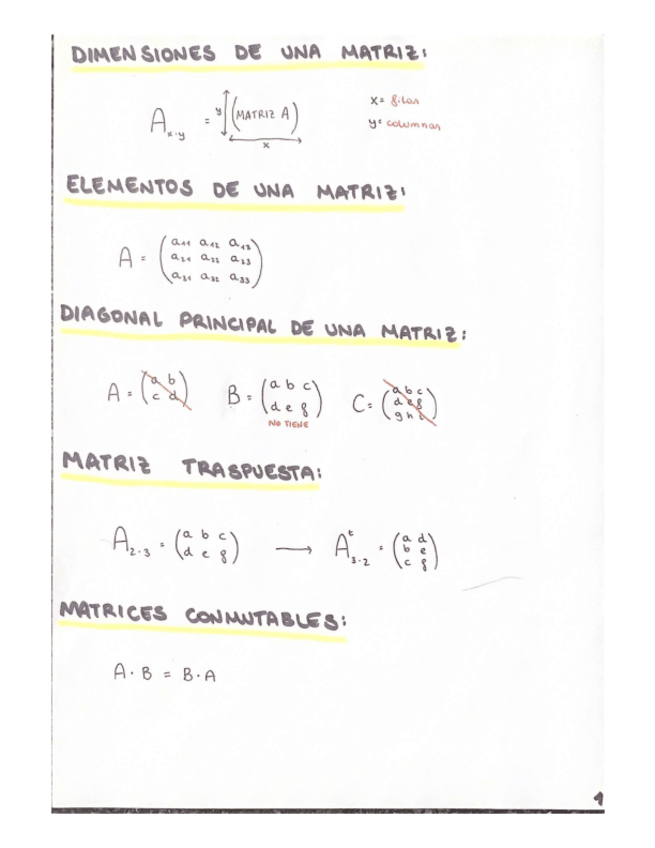 DIMENSIONES DE UNA MATRIZ:
A x·y = y (MATRIZ A) x
x= filas
y= columnas
ELEMENTOS DE UNA MATRIZ:
A = (a11 a12 a13
a21 a22 a23
a31 a32 a33)
DIAGONAL PRINCIPAL DE UNA MATRIZ:
A = (a b
c d)
B = (a b c
d e f)
NO TIENE
C = (a b c
d e f
g h i)
MATRIZ TRASPUESTA:
A2·3 = (a b c
d e f)
→ A^t 3·2 = (a d
b e
c f)
MATRICES CONMUTABLES:
A · B = B · A
1